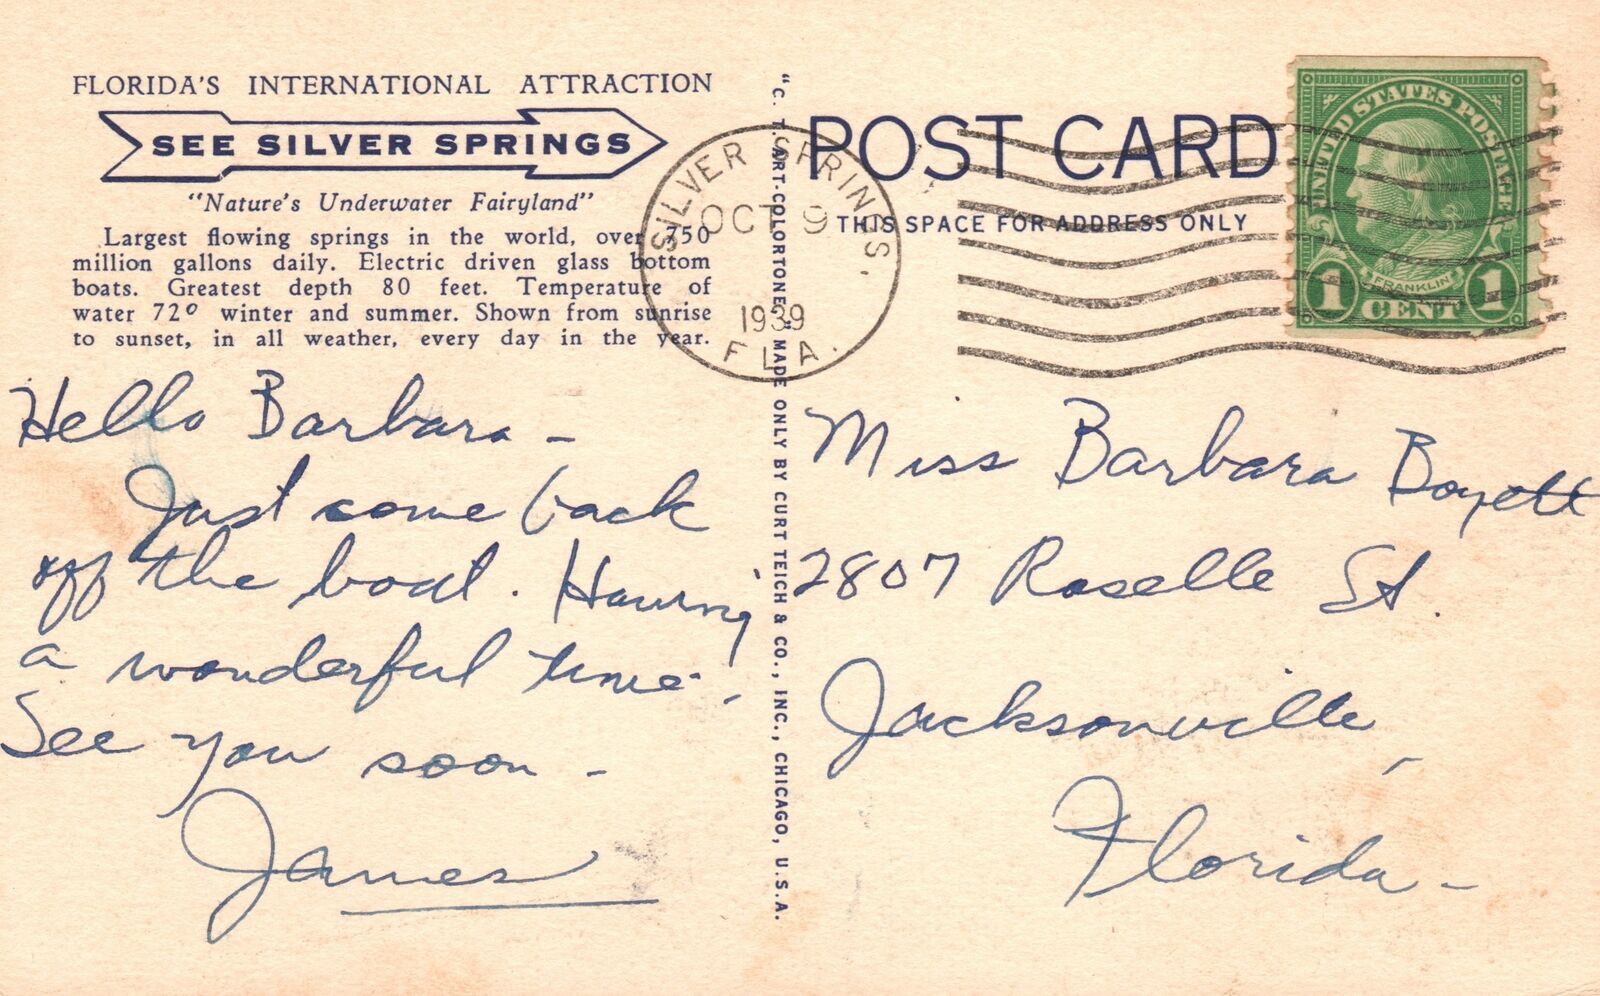 FLORIDA'S INTERNATIONAL ATTRACTION
SEE SILVER SPRINGS
"Nature's Underwater Fairyland"
Largest flowing springs in the world, over 750
million gallons daily. Electric driven glass bottom
boats. Greatest depth 80 feet. Temperature of
water 72º winter and summer. Shown from sunrise
to sunset, in all weather, every day in the year.
Hello Barbara -
Just come back
off the boat. Having
a wonderful time.
See you soon -
James
"C. T. ART-COLORTONE" MADE ONLY BY CURT TEICH & CO., INC., CHICAGO, U.S.A.
SILVER SPRINGS.
OCT 9
1939
FLA.
POST CARD
THIS SPACE FOR ADDRESS ONLY
UNITED STATES POSTAGE
FRANKLIN
1 CENT 1
Miss Barbara Boyett
2807 Roselle St.
Jacksonville,
Florida -